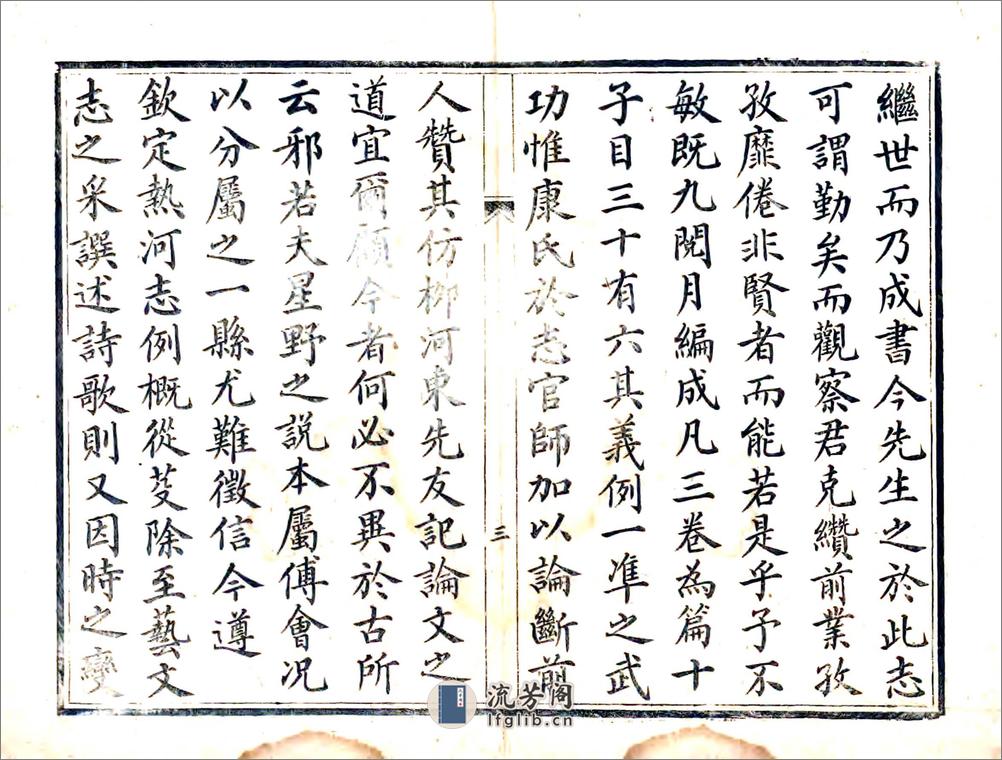 繼世而乃成書今先生之於此志
可謂勤矣而觀察君克纘前業孜
孜靡倦非賢者而能若是乎予不
敏既九閱月編成凡三卷為篇十
子目三十有六其義例一準之武
功惟康氏於志官師加以論斷前
三
人贊其仿柳河東先友記論文之
道宜爾顧今者何必不異於古所
云邪若夫星野之說本屬傅會况
以分屬之一縣尤難徵信今遵
欽定熱河志例概從芟除至藝文
志之采譔述詩歌則又因時之變
流芳閣
lfglib.cn